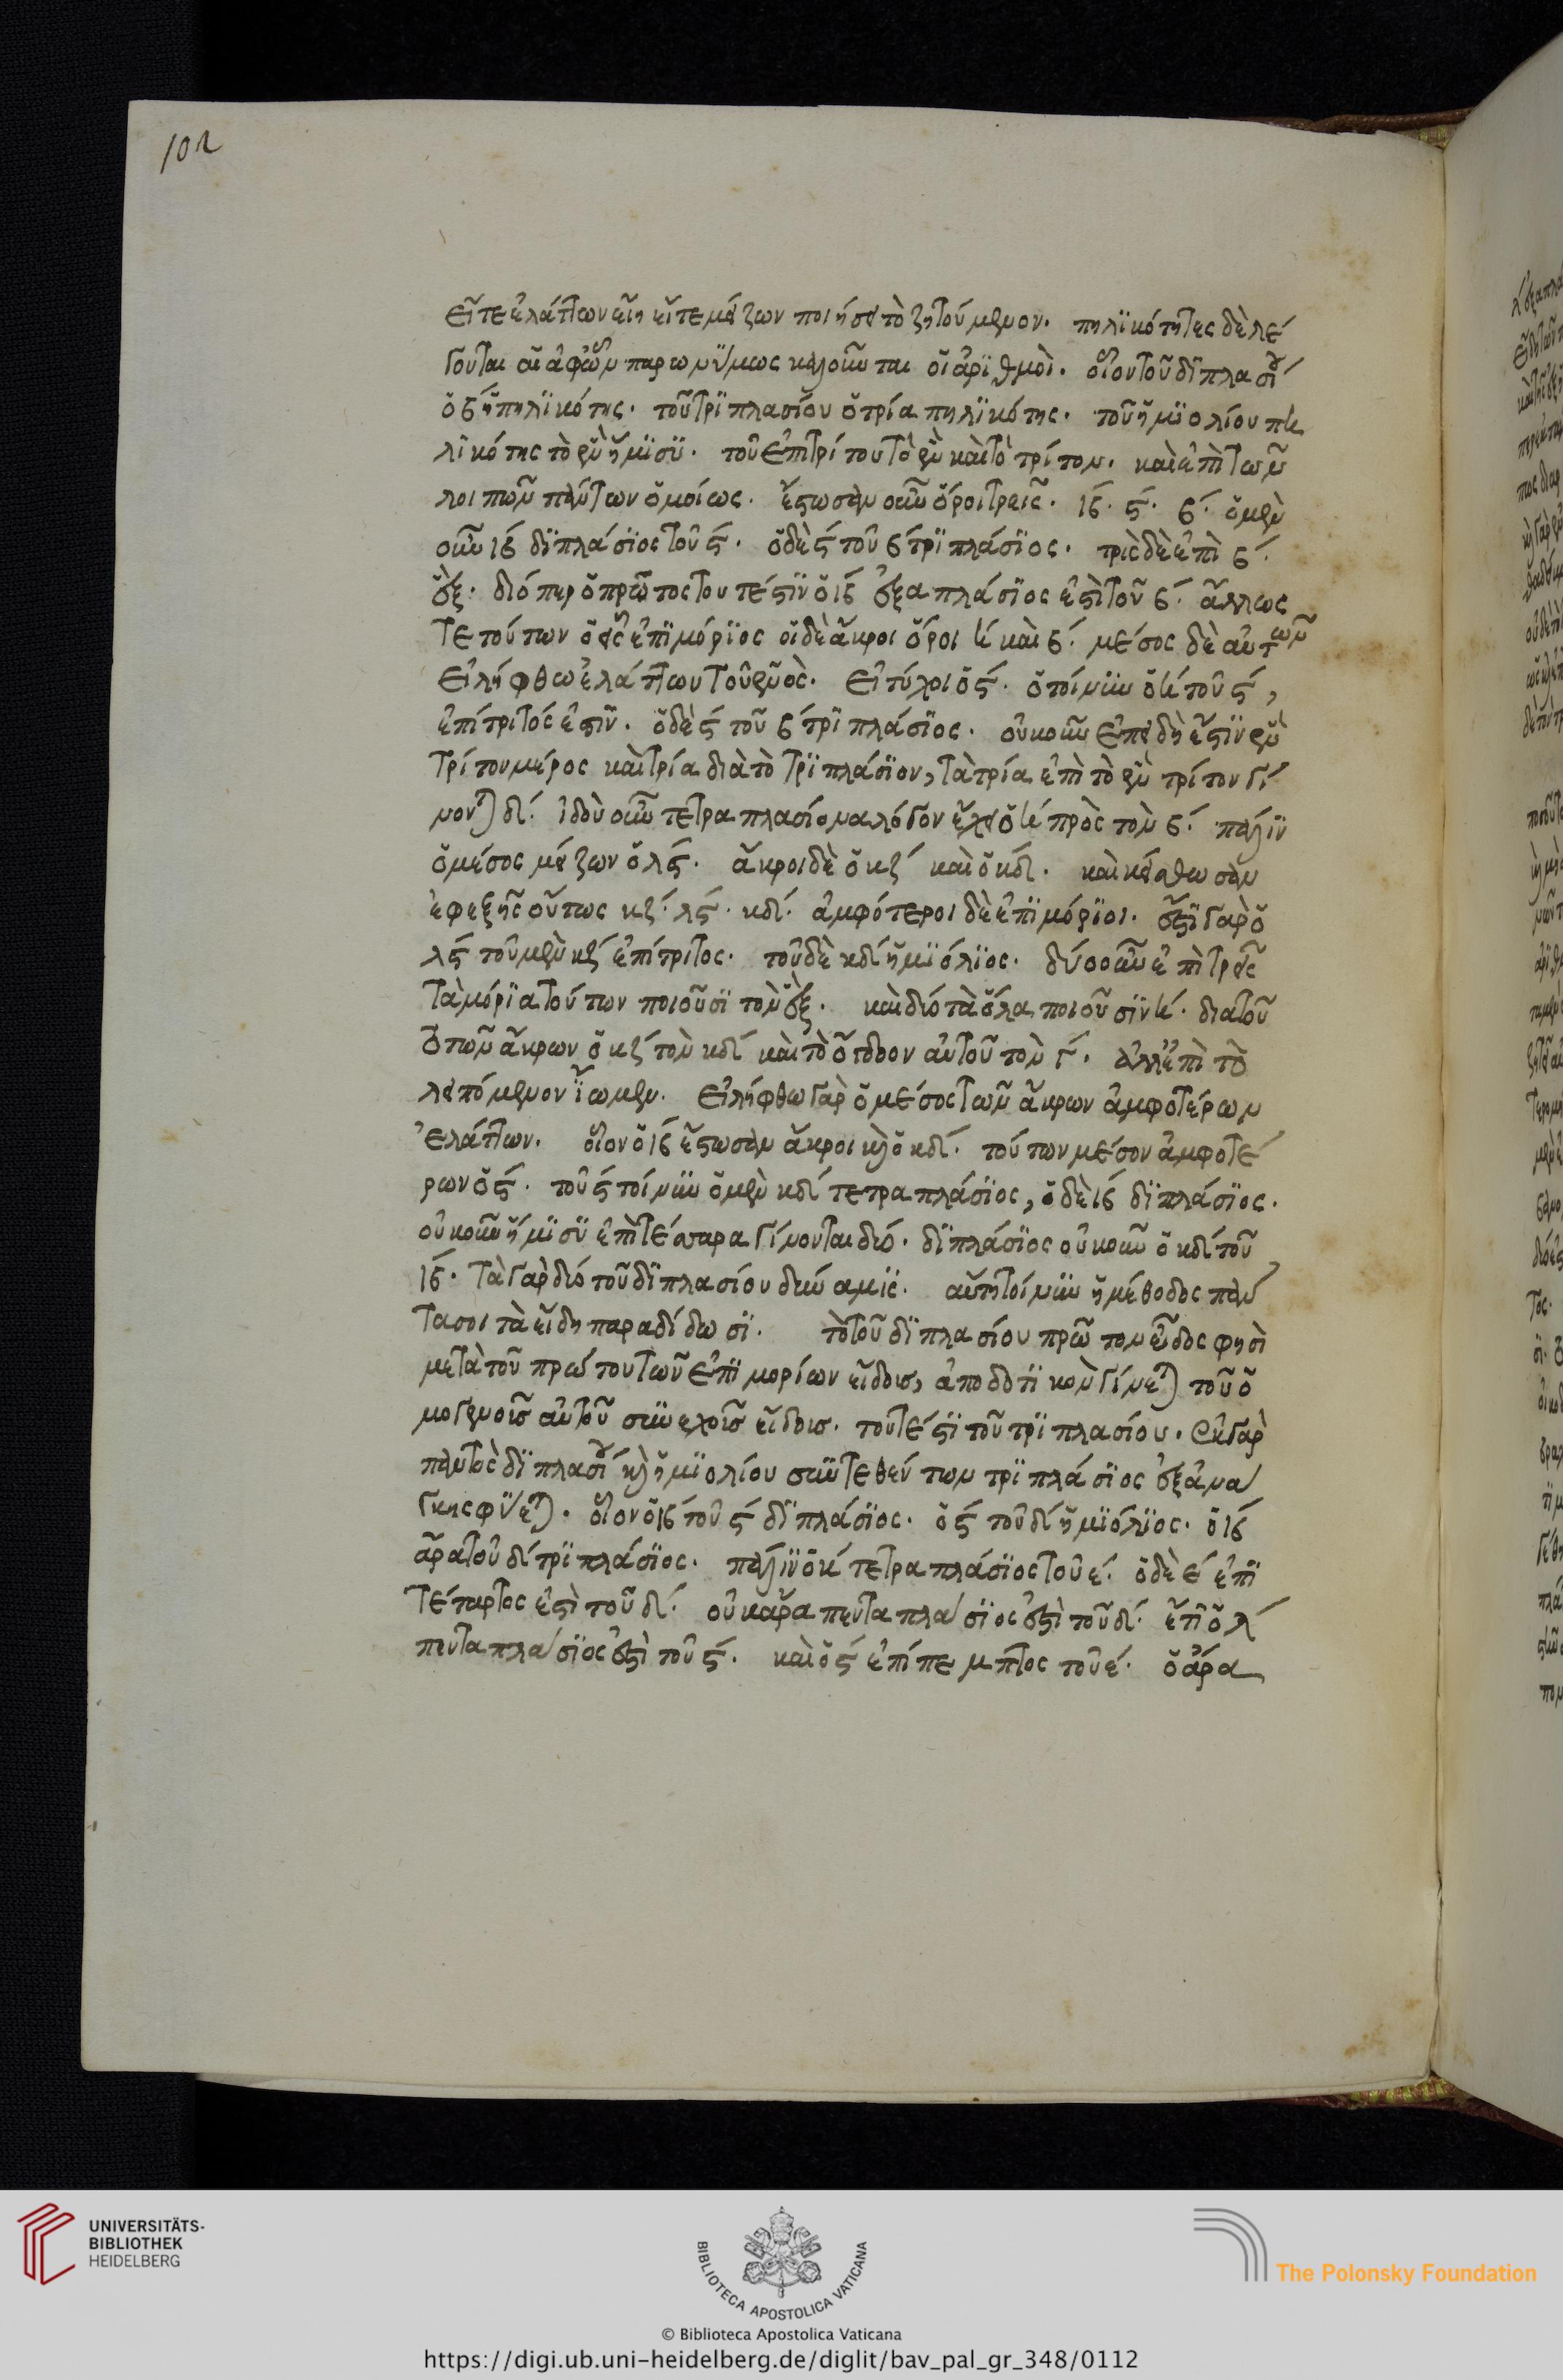 102
εἴτε ἐλάττων εἴη εἴτε μείζων ποιήσει τὸ ζητούμενον. πηλϊκότητες δὲ λέ
γονται αἱ ἀφ' ὧν παρωνύμως καλοῦνται οἱ ἀρϊθμοὶ. οἷον τοῦ δϊπλασί
ὁ β ἡ πηλϊκότης. τοῦ τρϊπλασίου ὁ τρία πηλϊκότης. τοῦ ἡμϊολίου πη
λικότης τὸ ἓν ἥμϊσϋ. τοῦ ἐπιτρίτου τὸ ἓν καὶ τὸ τρίτον. καὶ ἐπὶ τῶν
λοιπῶν πάντων ὁμοίως. ἔστωσαν οὖν ὅροι τρεῖς. ιβ. ς. β. ὁ μὲν
οὖν ιβ δϊπλάσϊος τοῦ ς. ὁ δὲ ς τοῦ β τρϊπλάσϊος. τρὶς δὲ ἐπὶ β.
ἕξ. διόπερ ὁ πρῶτος τουτέστϊν ὁ ιβ ἑξαπλάσϊος ἐστὶ τοῦ β. ἄλλως
τε τούτων ὁ εἷς ἐπϊμόρϊος οἱ δὲ ἄκροι ὅροι η καὶ β. μέσος δὲ αὐτῶν
εἰλήφθω ἐλάττων τοῦ ἑνὸς. εἰ τύχοι ὁ ς. ὁ τοίνυν ὁ η τοῦ ς,
ἐπίτριτός ἐστϊν. ὁ δὲ ς τοῦ β τρϊπλάσϊος. οὐκοῦν ἐπειδὴ ἔστϊν ἓν
τρίτον μέρος καὶ τρία διὰ τὸ τρϊπλάσϊον, τὰ τρία ἐπὶ τὸ ἓν τρίτον γί
νονται δ. ἰδοὺ οὖν τετραπλασίονα λόγον ἔχει ὁ η πρὸς τὸν β. πάλϊν
ὁ μέσος μείζων ὁ λς. ἄκροι δὲ ὁ κζ καὶ ὁ κδ. καὶ κείσθωσαν
ἐφεξῆς οὕτως κζ. λς. κδ. ἀμφότεροι δὲ ἐπϊμόρϊοι. ἔστϊ γὰρ ὁ
λς τοῦ μὲν κζ ἐπίτριτος. τοῦ δὲ κδ ἡμϊόλϊος. δύο οὖν ἐπὶ τρεῖς
τὰ μόρϊα τούτων ποιοῦσϊ τὸν ἕξ. καὶ διὸ τὰ ὅλα ποιοῦσϊν η. διὰ τοῦ
τῶν ἄκρων ὁ κζ τὸν κδ καὶ τὸ ὄγδοον αὐτοῦ τὸν γ. ἀλλ' ἐπὶ τὸ
λειπόμενον ἴωμεν. εἰλήφθω γὰρ ὁ μέσος τῶν ἄκρων ἀμφοτέρων
ἐλάττων. οἷον ὁ ιβ ἔστωσαν ἄκροι καὶ ὁ κδ. τούτων μέσον ἀμφοτέ
ρων ὁ ς. τοῦ ς τοίνυν ὁ μὲν κδ τετραπλάσϊος, ὁ δὲ ιβ δϊπλάσϊος.
οὐκοῦν ἥμϊσϋ ἐπὶ τέσσαρα γίνονται διό. δϊπλάσϊος οὐκοῦν ὁ κδ τοῦ
ιβ. τὰ γὰρ διό τοῦ δϊπλασίου δύναμϊς. αὕτη τοίνυν ἡ μέθοδος πάν
τα σοι τὰ εἴδη παραδίδωσϊ. τὸ τοῦ δϊπλασίου πρῶτον εἶδος φησὶ
μετὰ τοῦ πρώτου τῶν ἐπϊμορίων εἴδους, ἀποδοτϊκὸν γίνεται τοῦ ὁ
μογενοῦς αὐτοῦ συνεχοῦς εἴδους. τουτέστϊ τοῦ τρϊπλασίου. ἐκ γὰρ
παντὸς δϊπλασί καὶ ἡμϊολίου συντεθέντων τρϊπλάσϊος ἐξ ἀνά
γκης φύεται. οἷον ὁ ιβ τοῦ ς δϊπλάσϊος. ὁ ς τοῦ δ ἡμϊόλϊος. ὁ ιβ
ἄρα τοῦ δ τρϊπλάσϊος. πάλϊν ὁ κ τετραπλάσϊος τοῦ ε. ὁ δὲ ε ἐπϊ
τέταρτος ἐστὶ τοῦ δ. οὐκ ἄρα πενταπλάσϊος ἐστὶ τοῦ δ. ἔτϊ ὁ λ
πενταπλάσϊος ἐστὶ τοῦ ς. καὶ ὁ ς ἐπίπεμπτος τοῦ ε. ὁ ἄρα
UNIVERSITÄTS-
BIBLIOTHEK
HEIDELBERG
BIBLIOTECA APOSTOLICA VATICANA
The Polonsky Foundation
© Biblioteca Apostolica Vaticana
https://digi.ub.uni-heidelberg.de/diglit/bav_pal_gr_348/0112